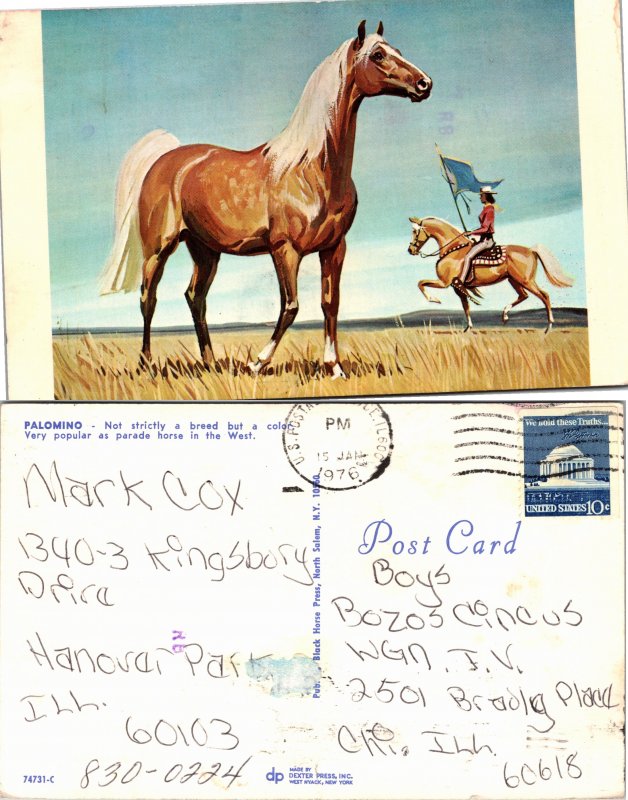 PALOMINO - Not strictly a breed but a color.
Very popular as parade horse in the West.
U.S. POSTAL
PM
15 JAN
1976
We hold these Truths...
UNITED STATES 10c
Mark Cox
1340-3 Kingsbory
Drive
Hanover Park
Ill.
60103
830-0224
Pub. by Black Horse Press, North Salem, N.Y. 10560
Post Card
Boys
Bozos Circus
WGN. T.V.
2501 Bradly Place
Chi. Ill.
60618
74731-C
dp
MADE BY
DEXTER PRESS, INC.
WEST NYACK, NEW YORK